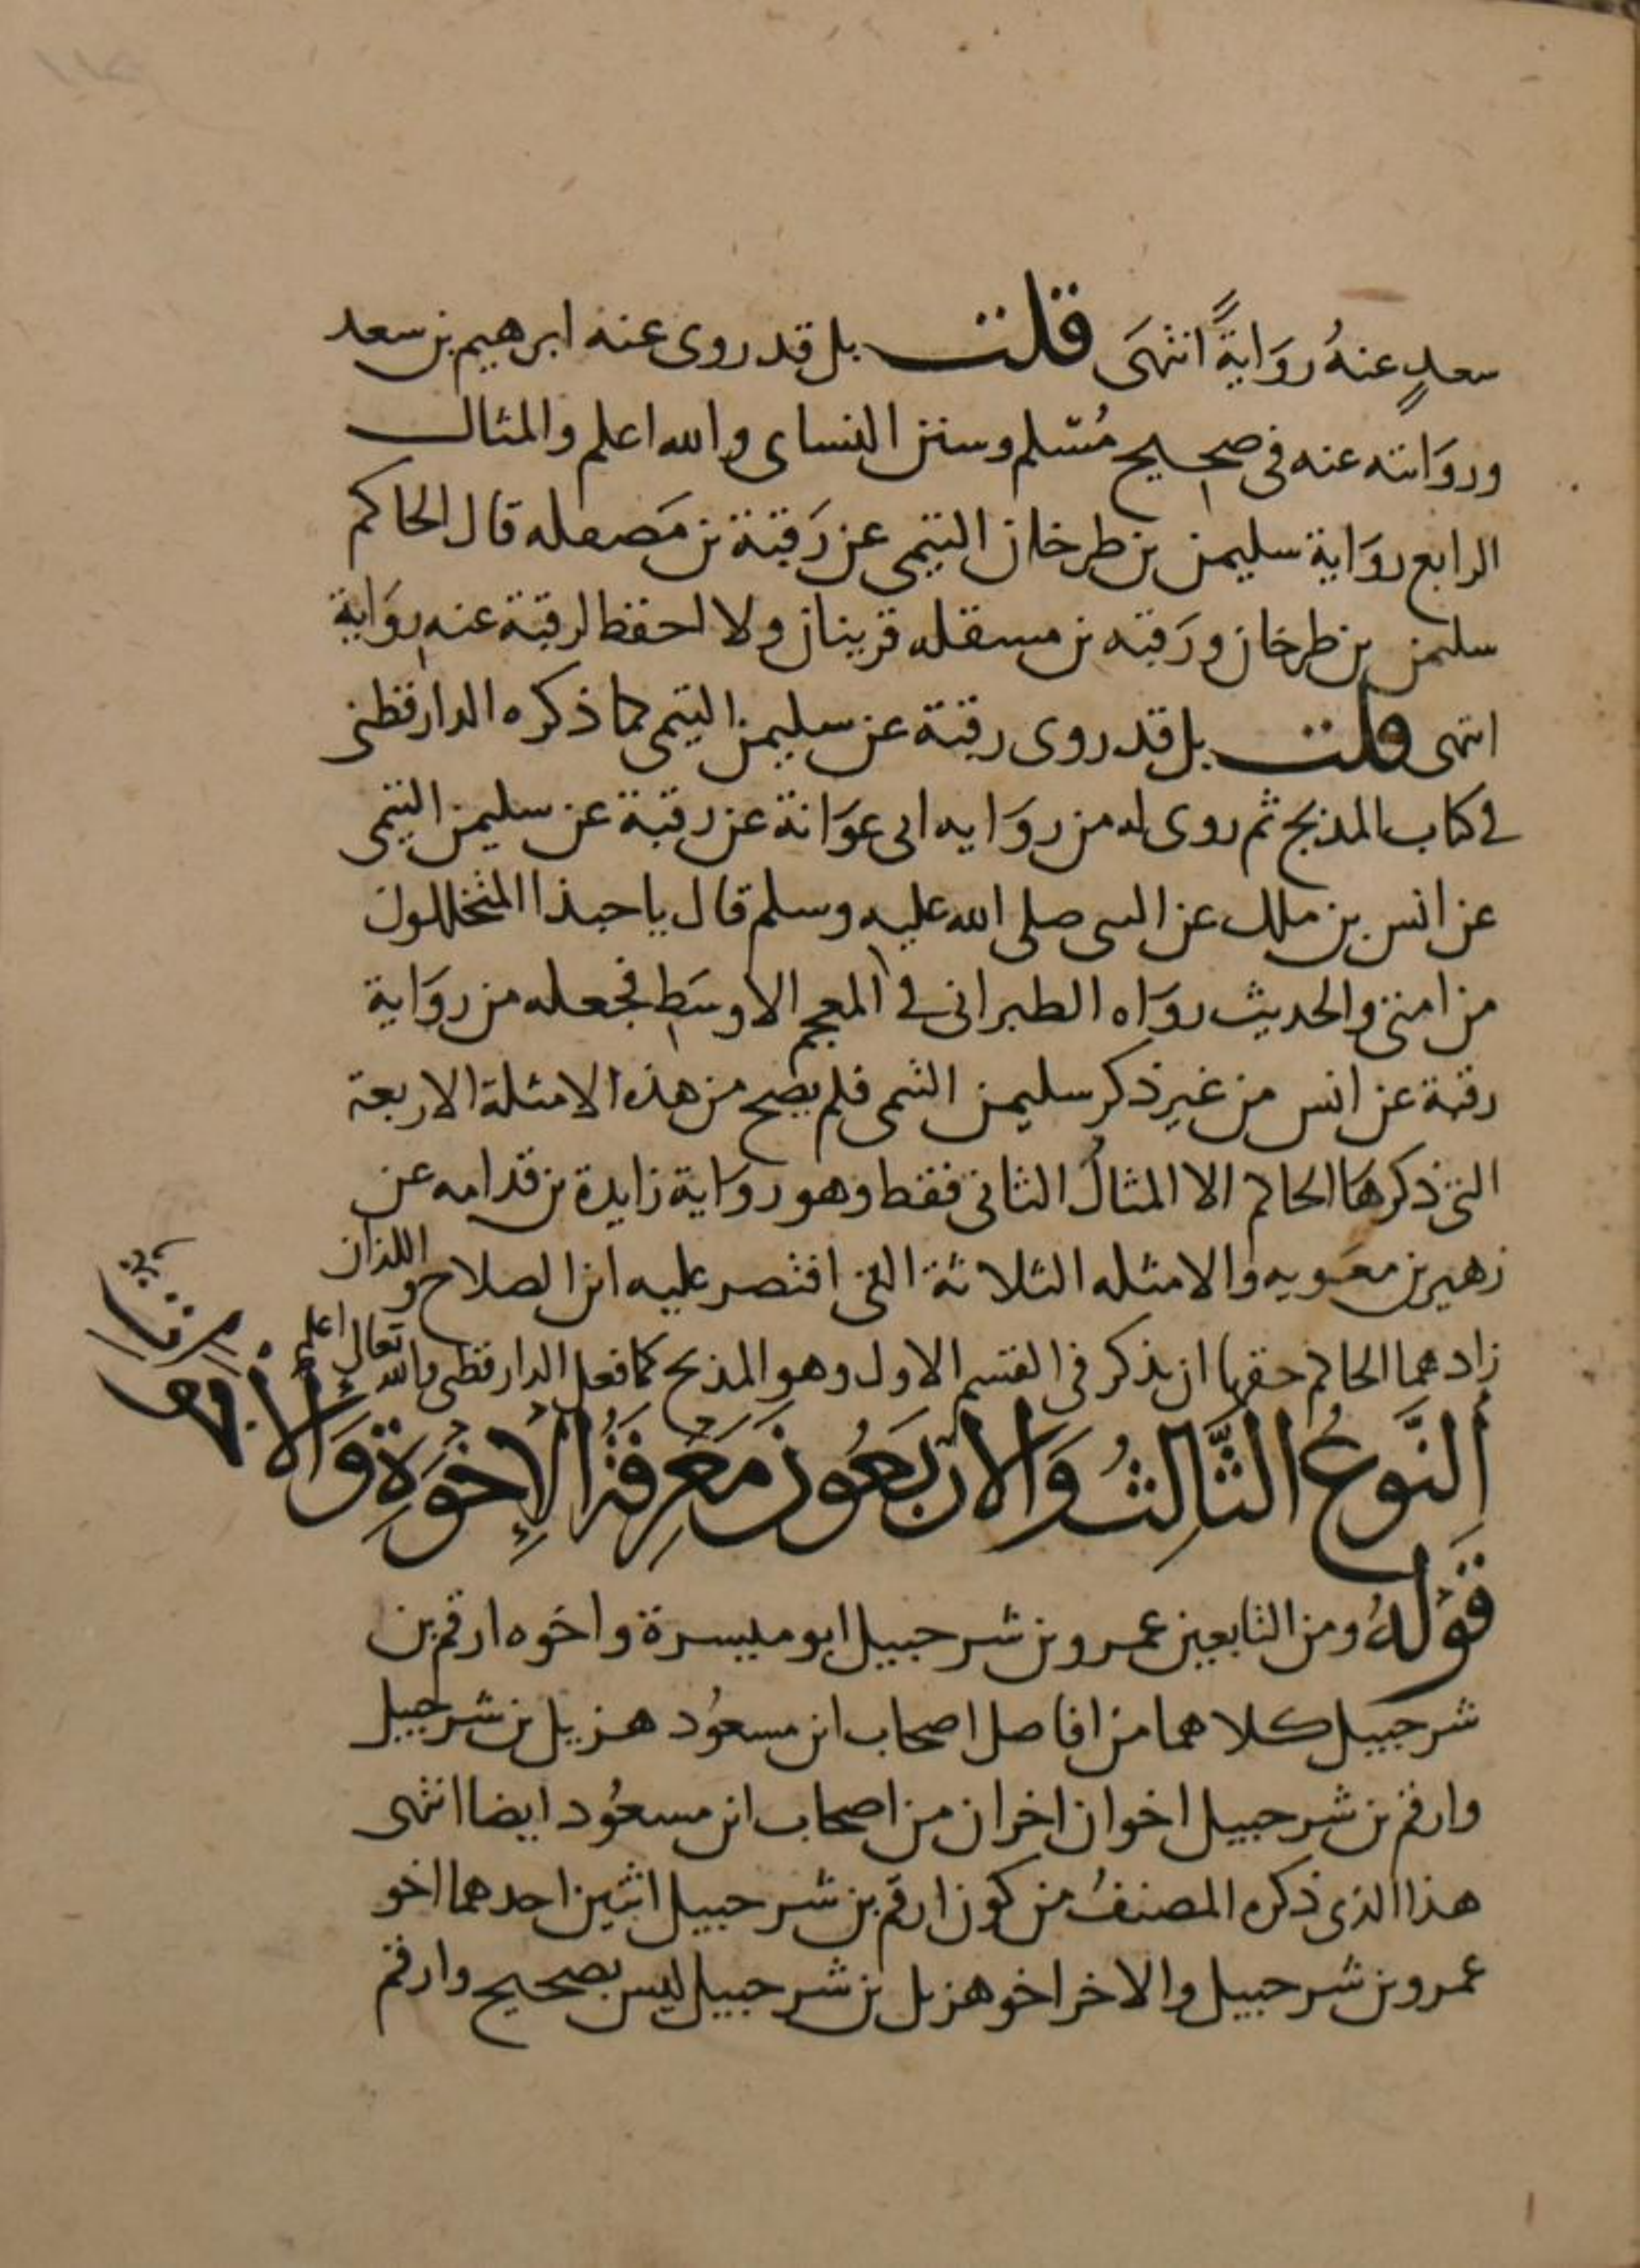 سعدٍ عنهُ رِوَايةً انتهَى قلت بل قد روى عنه ابرهيم بن سعد
وروَايته عنه فى صحيح مُسْلم وسنن النساى والله اعلم والمثال
الرابع روَاية سليمن بن طرخان التيمى عن رَقبة بن مَصقله قال الحاكم
سليمن بن طرخان ورَقبه بن مسقله قرينان ولا احفظ لرقبة عنه روَاية
انتهى قلت بل قد روى رقبة عن سليمن التيمى كما ذكره الدارقطنى
فى كتاب المذبج ثم روى له من روَايه ابى عوَانة عن رقبة عن سليمن التيمى
عن انس بن ملك عن النبى صلى الله عليه وسلم قال يا حبذا المتخللون
من امتى والحديث روَاه الطبرانى فى المعجم الاوسَط فجعله من روَاية
رقبة عن انس من غير ذكر سليمن التيمى فلم يصح من هذه الامثلة الاربعة
التى ذكرهَا الحاكم الا المثالُ الثانى فقط وهو روَاية زايدة بن قدامه عن
زهير بن معَويه والامثله الثلاثة التى اقتصر عليه ابن الصلاح و اللذان
زادهما الحاكم حقها ان يذكر فى القسم الاول وهو المذبج كما فعل الدارقطنى والله تعالى اعلم
اَلنَّوعُ الثَّالِثُ وَالارْبَعُونَ مَعْرِفَةُ الإِخْوَةِ وَالأَخَوَاتِ
قَوْلهُ ومن التابعين عمرو بن شرحبيل ابو ميسرة واخوه ارقم بن
شرحبيل كلاهما من افاضل اصحاب ابن مسعُود هزيل بن شرحبيل
وارقم بن شرحبيل اخوان اخران من اصحاب ابن مسعُود ايضا انتهى
هذا الذى ذكره المصنفُ من كون ارقم بن شرحبيل اثنين احدهما اخو
عمرو بن شرحبيل والاخر اخو هزيل بن شرحبيل ليس بصحيح وارقم